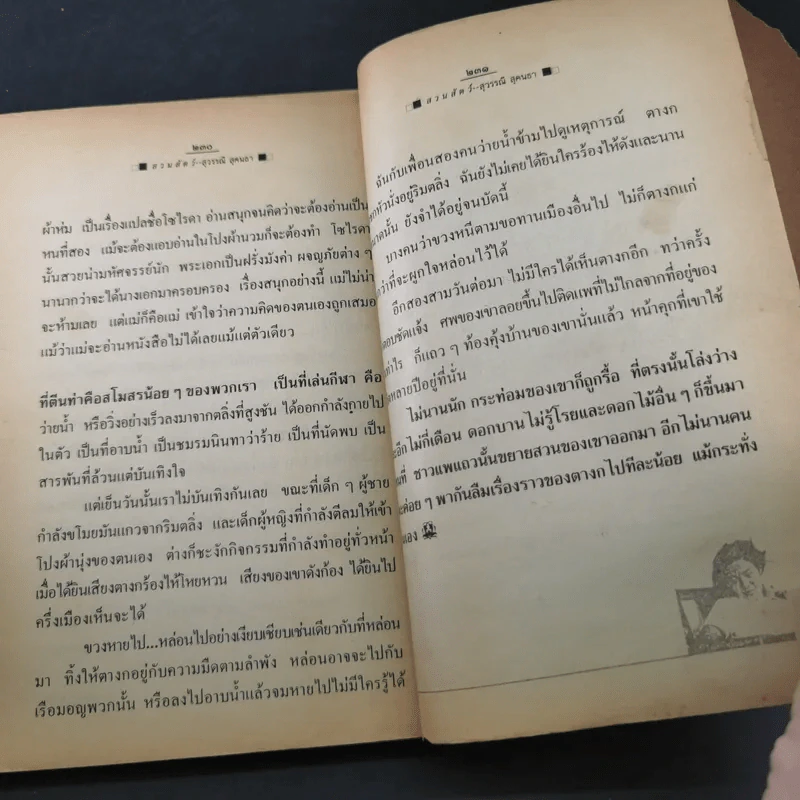 ๒๓๐
สวนสัตว์--สุวรรณี สุคนธา
ผ้าห่ม เป็นเรื่องแปลชื่อโซไรดา อ่านสนุกจนคิดว่าจะต้องอ่านเป็น
หนที่สอง แม้จะต้องแอบอ่านในโปงผ้านวมก็จะต้องทำ โซไรดา
นั้นสวยน่ามหัศจรรย์นัก พระเอกเป็นฝรั่งมังค่า ผจญภัยต่าง ๆ
นานากว่าจะได้นางเอกมาครอบครอง เรื่องสนุกอย่างนี้ แม่ไม่น่า
จะห้ามเลย แต่แม่ก็คือแม่ เข้าใจว่าความคิดของตนเองถูกเสมอ
แม้ว่าแม่จะอ่านหนังสือไม่ได้เลยแม้แต่ตัวเดียว
ที่ตีนท่าคือสโมสรน้อย ๆ ของพวกเรา เป็นที่เล่นกีฬา คือ
ว่ายน้ำ หรือวิ่งอย่างเร็วลงมาจากตลิ่งที่สูงชัน ได้ออกกำลังกายไป
ในตัว เป็นที่อาบน้ำ เป็นชมรมนินทาว่าร้าย เป็นที่นัดพบ เป็น
สารพันที่ล้วนแต่บันเทิงใจ
แต่เย็นวันนั้นเราไม่บันเทิงกันเลย ขณะที่เด็ก ๆ ผู้ชาย
กำลังขโมยมันแกวจากริมตลิ่ง และเด็กผู้หญิงที่กำลังตีลมให้เข้า
โปงผ้านุ่งของตนเอง ต่างก็ชะงักกิจกรรมที่กำลังทำอยู่ทั่วหน้า
เมื่อได้ยินเสียงตางกร้องไห้โหยหวน เสียงของเขาดังก้อง ได้ยินไป
ครึ่งเมืองเห็นจะได้
ขวงหายไป...หล่อนไปอย่างเงียบเชียบเช่นเดียวกับที่หล่อน
มา ทิ้งให้ตางกอยู่กับความมืดตามลำพัง หล่อนอาจจะไปกับ
เรือมอญพวกนั้น หรือลงไปอาบน้ำแล้วจมหายไปไม่มีใครรู้ได้
๒๓๑
สวนสัตว์--สุวรรณี สุคนธา
ฉันกับเพื่อนสองคนว่ายน้ำข้ามไปดูเหตุการณ์ ตางก
หัวนั่งอยู่ริมตลิ่ง ฉันยังไม่เคยได้ยินใครร้องไห้ดังและนาน
นั้น ยังจำได้อยู่จนบัดนี้
บางคนว่าขวงหนีตามขอทานเมืองอื่นไป ไม่ก็ตางกแก่
ว่าที่จะผูกใจหล่อนไว้ได้
อีกสองสามวันต่อมา ไม่มีใครได้เห็นตางกอีก ทว่าครั้ง
ชัดแจ้ง ศพของเขาลอยขึ้นไปติดแพที่ไม่ไกลจากที่อยู่ของ
ก็แถว ๆ ท้องคุ้งบ้านของเขานั่นแล้ว หน้าคุกที่เขาใช้
หลายปีอยู่ที่นั่น
ไม่นานนัก กระท่อมของเขาก็ถูกรื้อ ที่ตรงนั้นโล่งว่าง
อีกไม่กี่เดือน ดอกบานไม่รู้โรยและดอกไม้อื่น ๆ ก็ขึ้นมา
ชาวแพแถวนั้นขยายสวนของเขาออกมา อีกไม่นานคน
ค่อย ๆ พากันลืมเรื่องราวของตางกไปทีละน้อย แม้กระทั่ง